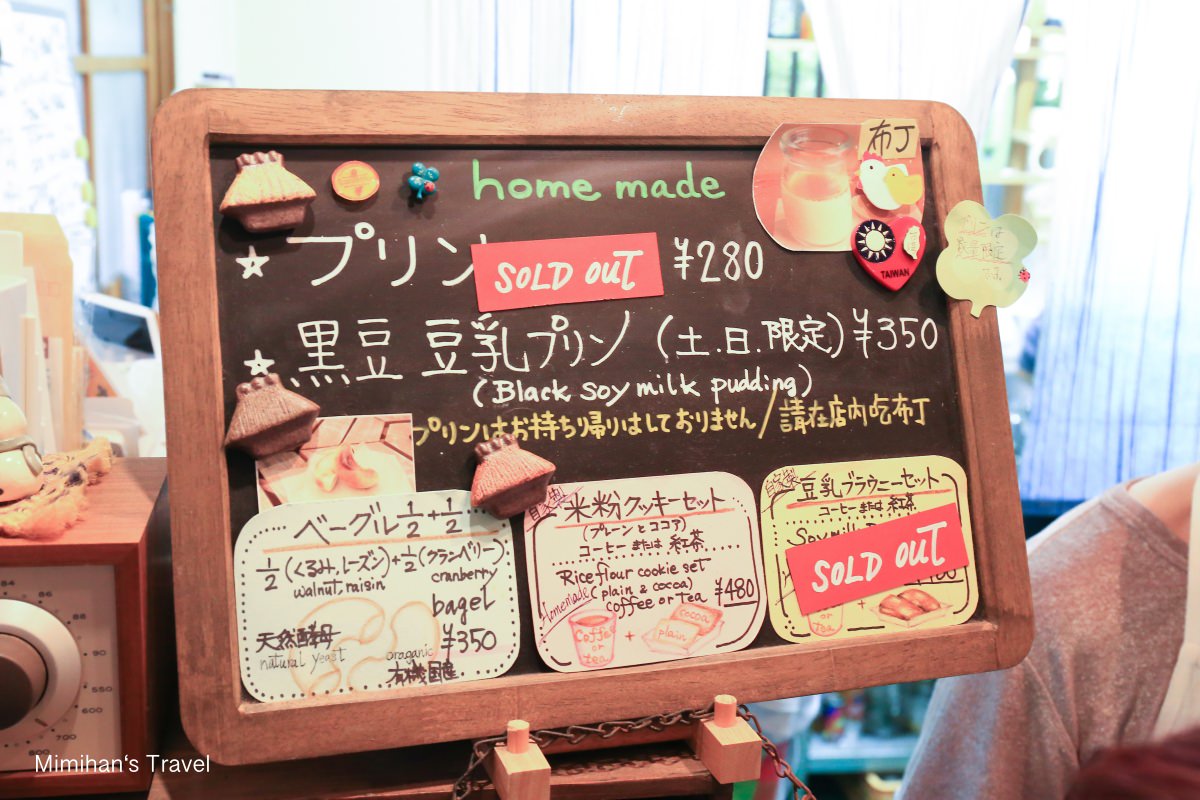 home made
布丁
プリン SOLD OUT ¥280
TAIWAN
黒豆 豆乳プリン (土.日.限定) ¥350
(Black soy milk pudding)
プリンはお持ち帰りはしておりません/請在店内吃布丁
ベーグル 1/2+1/2
1/2(くるみ,レーズン)+1/2(クランベリー)
walnut, raisin cranberry
bagel
¥350
天然酵母
natural yeast
oraganic
有機国産
自家製 米粉クッキーセット
(プレーンとココア)
コーヒー または 紅茶
Rice flour cookie set
Homemade (plain & cocoa) ¥480
coffee or tea
Coffee or tea + plain cocoa
自家製 豆乳ブラウニーセット
コーヒー または 紅茶
Soy milk
SOLD OUT
or
tea +
84
86
90
550
600
700
800
Mimihan's Travel